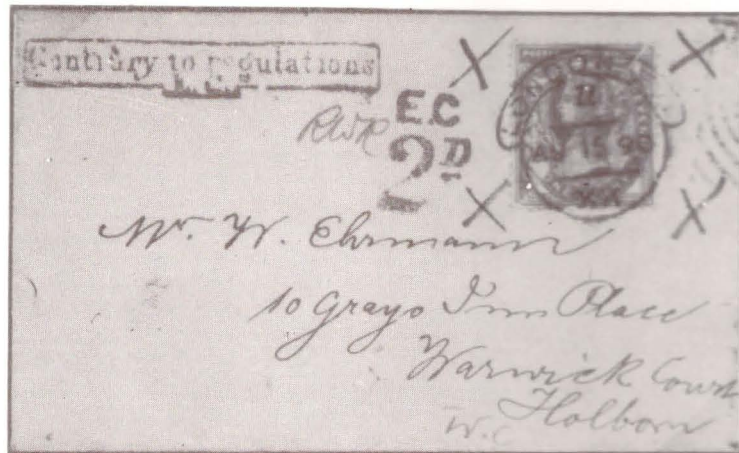 Contrary to regulations
E.C
2D
LONDON
11
AU 15 90
Mr. W. Ehrmann
10 Grays Inn Place
Warwick Court
Holborn
W.C